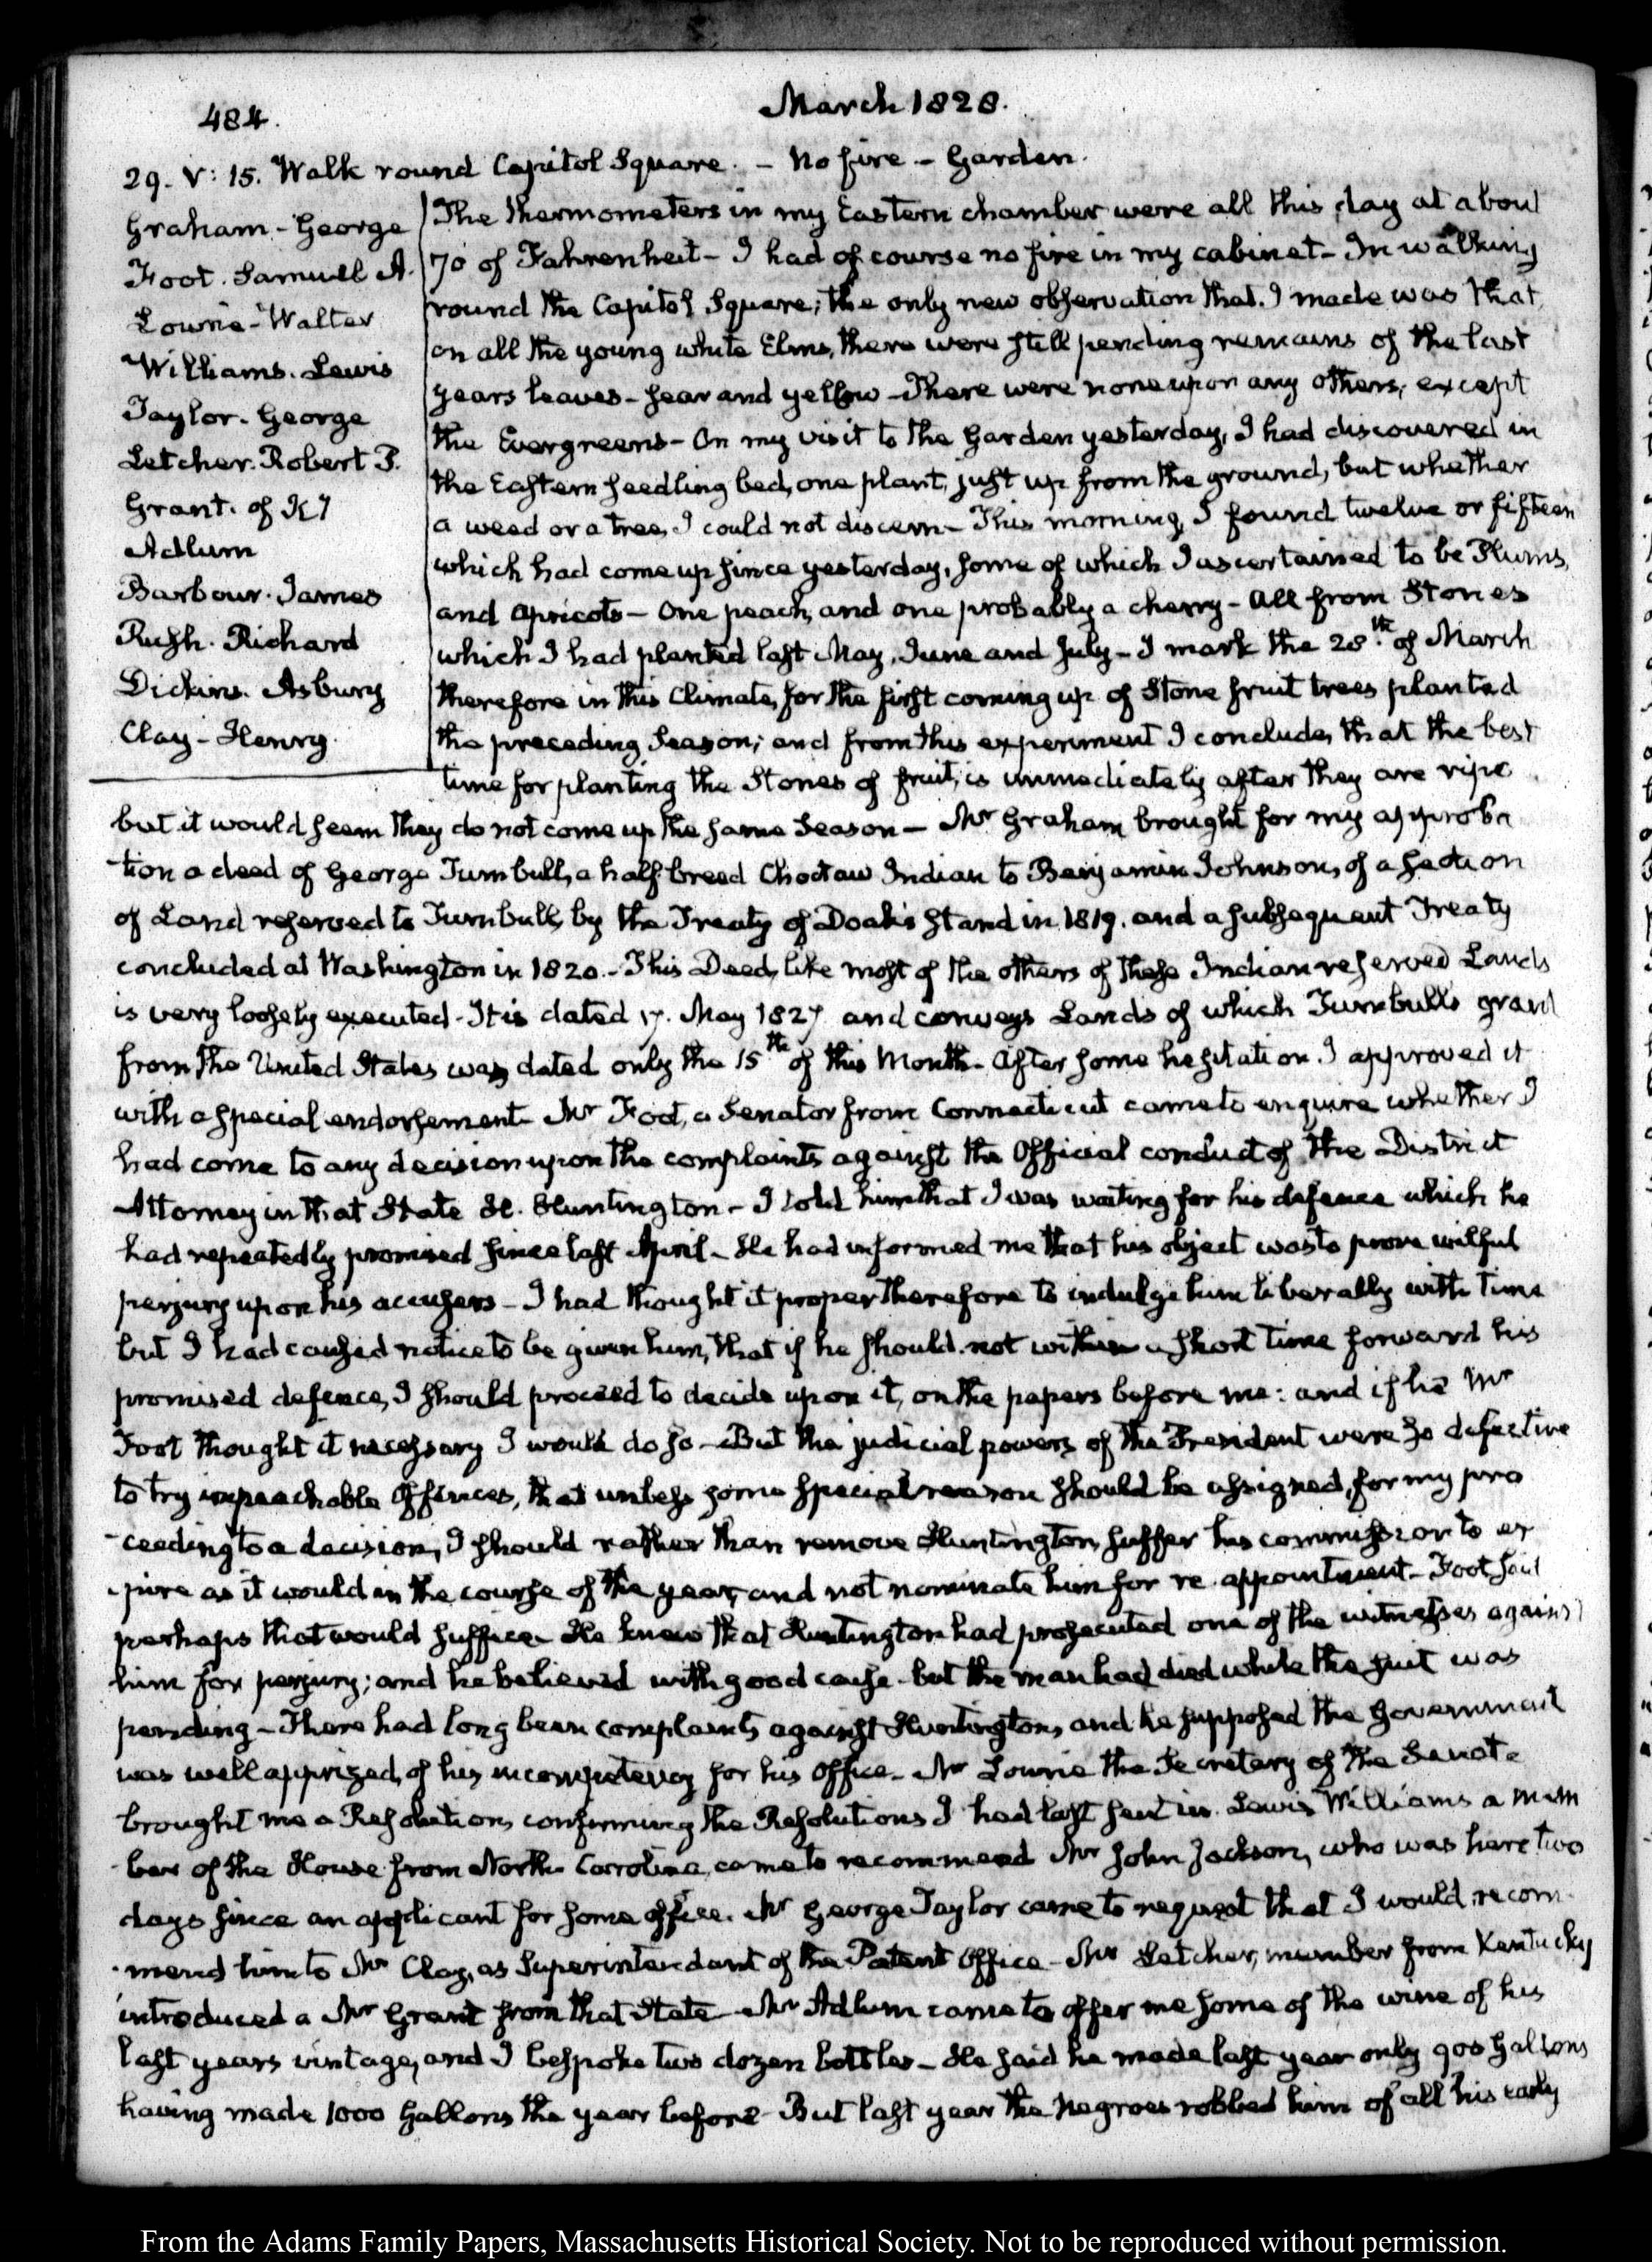 484.
March 1828.
29. V: 15. Walk round Capitol Square. - No fire - Garden.
Graham - George
Foot. Samuel A.
Lowrie - Walter
Williams. Lewis
Taylor. George
Letcher. Robert P.
Grant. of Ky
Adlum
Barbour. James
Rush. Richard
Dickins. Asbury
Clay - Henry.
The thermometers in my Eastern chamber were all this day at about
70 of Fahrenheit - I had of course no fire in my cabinet - In walking
round the Capitol Square; the only new observation that I made was that
on all the young white Elms, there were still pending remains of the last
years leaves - sear and yellow - There were none upon any others, except
the Evergreens - On my visit to the Garden yesterday, I had discovered in
the Eastern seedling bed, one plant, just up from the ground, but whether
a weed or a tree, I could not discern - This morning, I found twelve or fifteen
which had come up since yesterday, some of which I ascertained to be Plums,
and Apricots - One peach, and one probably a cherry - All from Stones
which I had planted last May, June and July - I mark the 28th. of March
therefore in this Climate, for the first coming up of Stone fruit trees planted
the preceding Season; and from this experiment I conclude, that the best
time for planting the Stones of fruit, is immediately after they are ripe
but it would seem they do not come up the same Season - Mr Graham brought for my approba
tion a deed of George Turnbull, a half breed Choctaw Indian to Benjamin Johnson, of a section
of Land reserved to Turnbull, by the Treaty of Doak's Stand in 1819. and a subsequent Treaty
concluded at Washington in 1820. - This Deed, like most of the others of these Indian reserved Lands
is very loosely executed - It is dated 17. May 1827 and conveys Lands of which Turnbull's grant
from the United States was dated only the 15th of this Month - After some hesitation I approved it
with a special endorsement - Mr Foot, a Senator from Connecticut came to enquire whether I
had come to any decision upon the complaints against the Official conduct of the District
Attorney in that State H. Huntington - I told him that I was waiting for his defence which he
had repeatedly promised since last April - He had informed me that his object was to prove wilful
perjury upon his accusers - I had thought it proper therefore to indulge him liberally with time
but I had caused notice to be given him, that if he should not within a short time forward his
promised defence, I should proceed to decide upon it, on the papers before me: and if he Mr
Foot thought it necessary I would do so - But the judicial powers of the President were so defective
to try impeachable Offences, that unless some special reason should be assigned, for my pro
-ceeding to a decision, I should rather than remove Huntington, suffer his commission to ex
-pire as it would in the course of the year, and not nominate him for re-appointment - Foot said
perhaps that would suffice - He knew that Huntington had prosecuted one of the witnesses against
him for perjury; and he believed with good cause - but the man had died while the suit was
pending - There had long been complaints against Huntington, and he supposed the Government
was well apprized, of his incompetency for his Office - Mr Lowrie the Secretary of the Senate
brought me a Resolution, confirming the Resolutions I had last sent in. Lewis Williams a mem
-ber of the House from North Carrolina, came to recommend Mr John Jackson, who was here two
days since an applicant for some office. Mr George Taylor came to request that I would recom
-mend him to Mr Clay, as Superintendant of the Patent Office - Mr Letcher, member from Kentucky
introduced a Mr Grant from that State - Mr Adlum came to offer me some of the wine of his
last years vintage, and I bespoke two dozen bottles - He said he made last year only 900 Gallons
having made 1000 Gallons the year before - But last year the Negroes robbed him of all his early
From the Adams Family Papers, Massachusetts Historical Society. Not to be reproduced without permission.